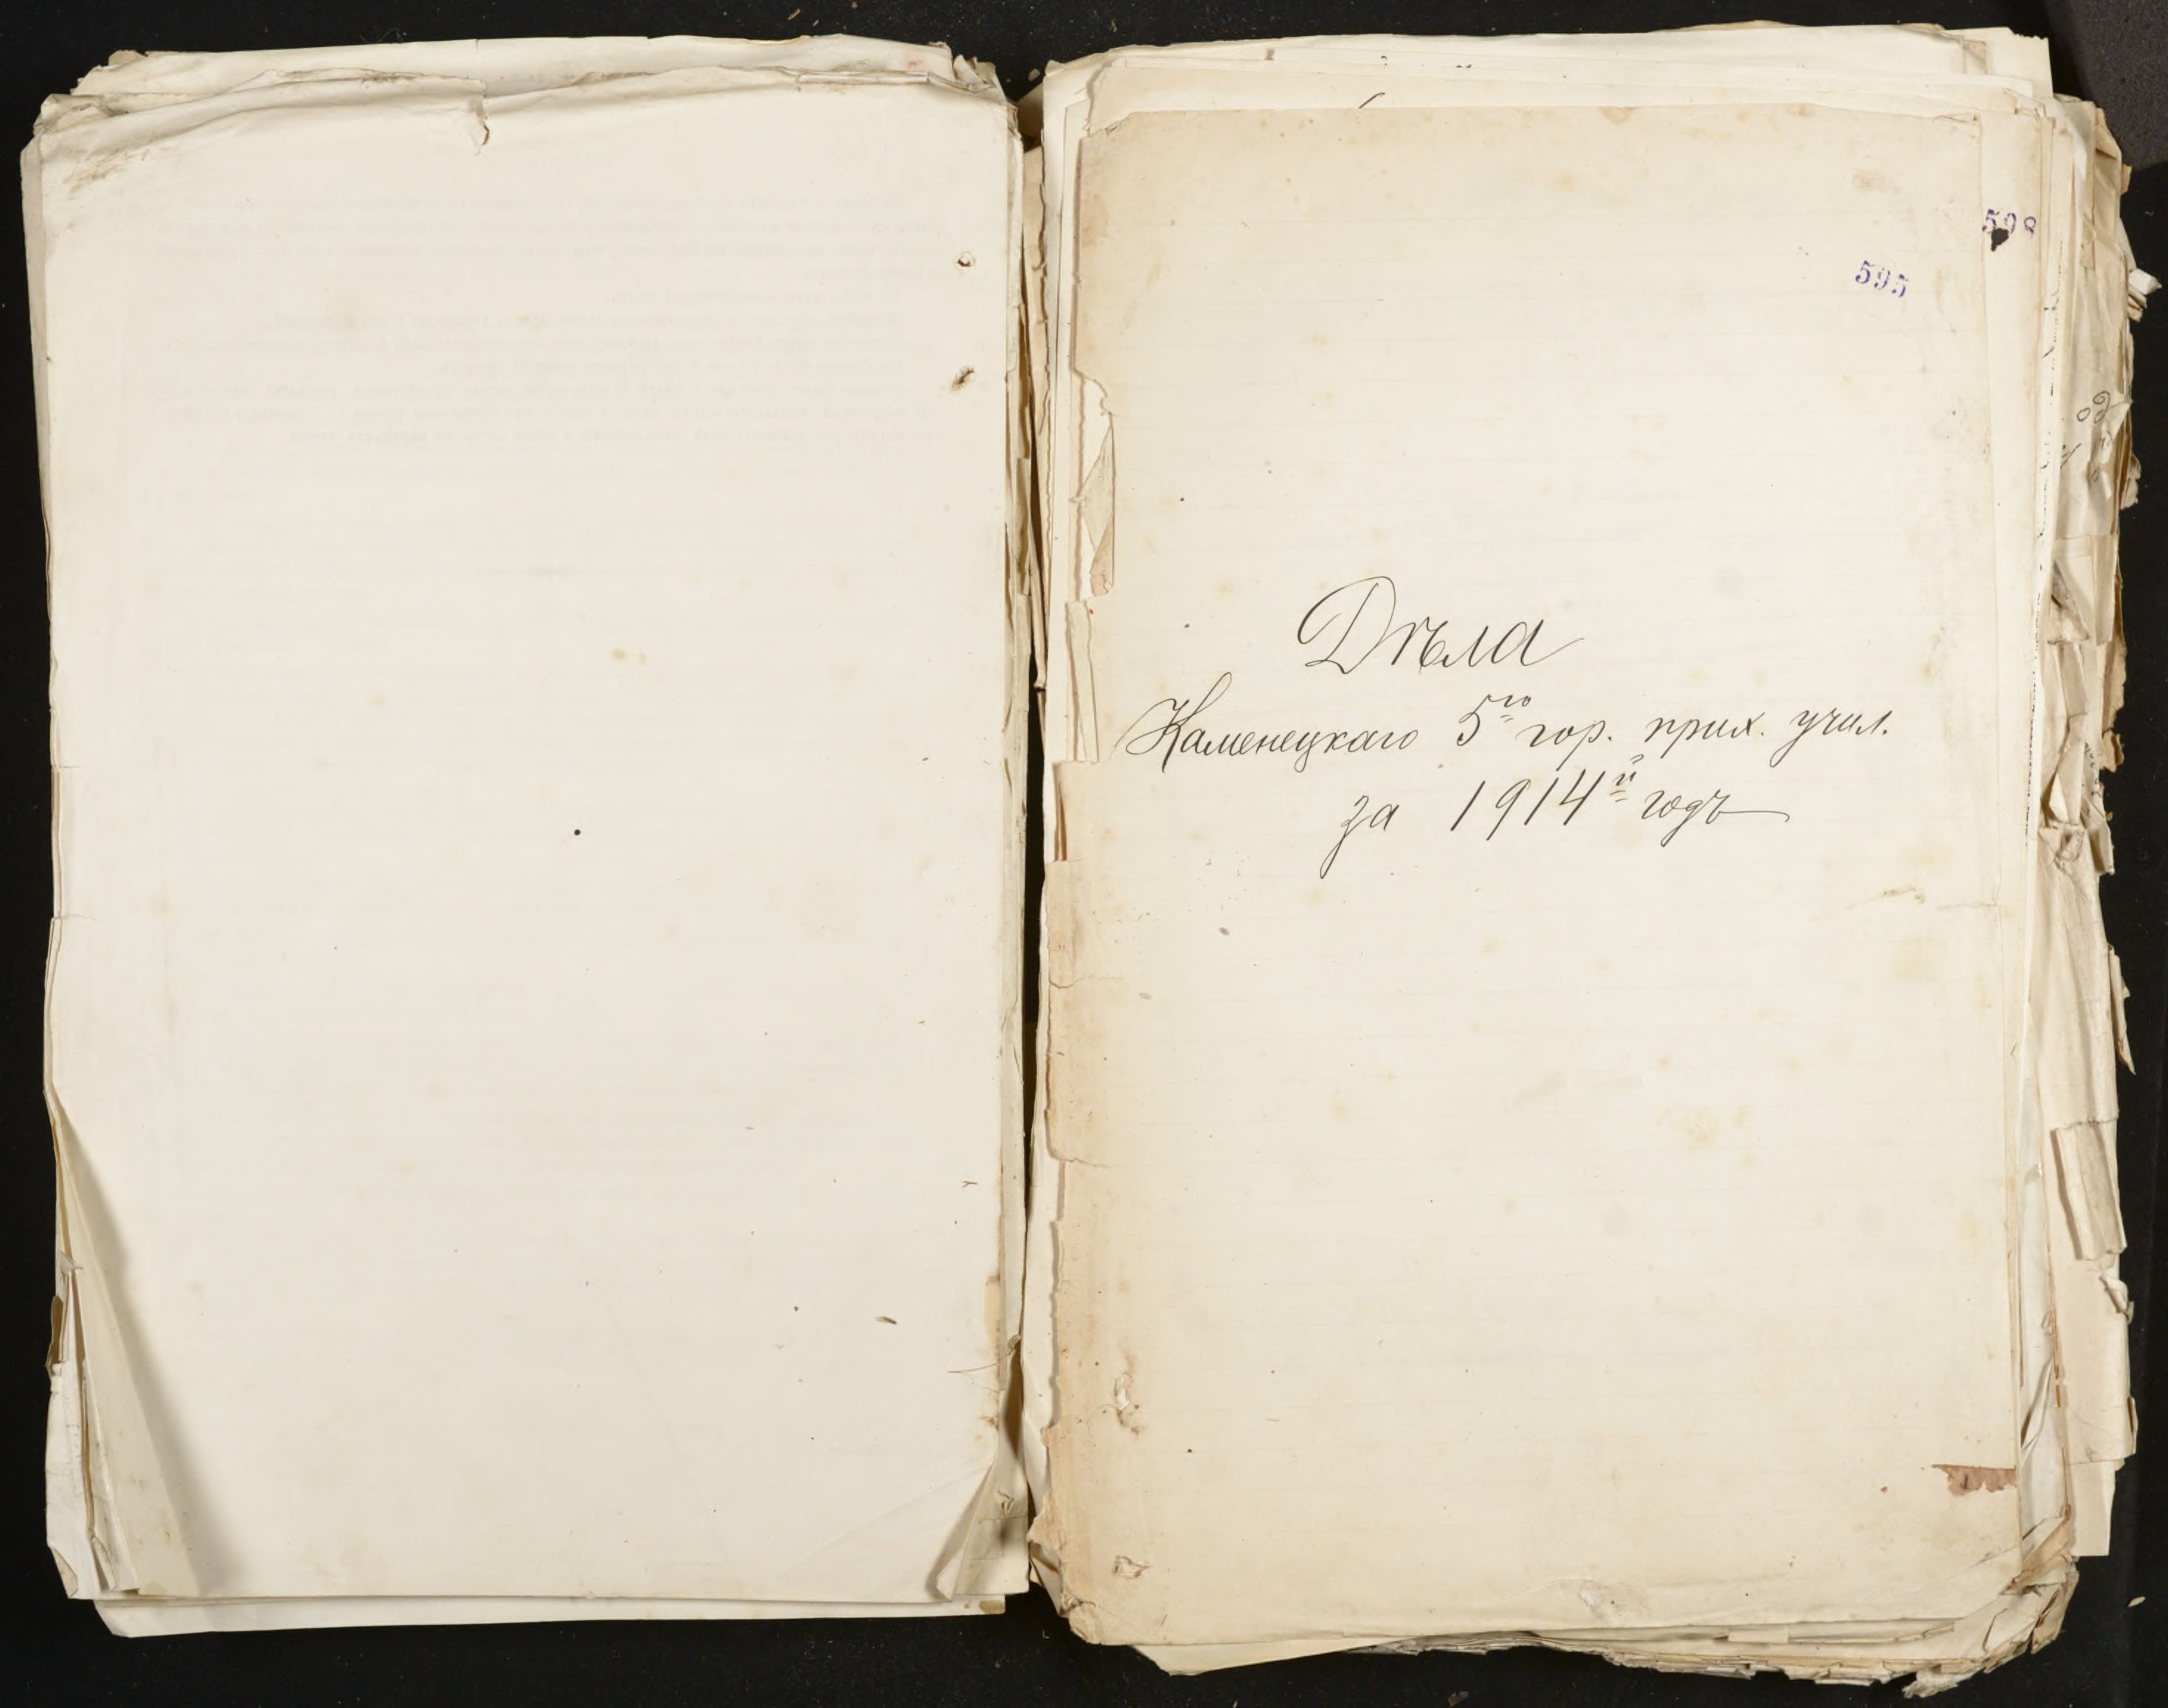 598
595
Дѣла
Каменецкаго 5го гор. прих. учил.
за 1914й годъ